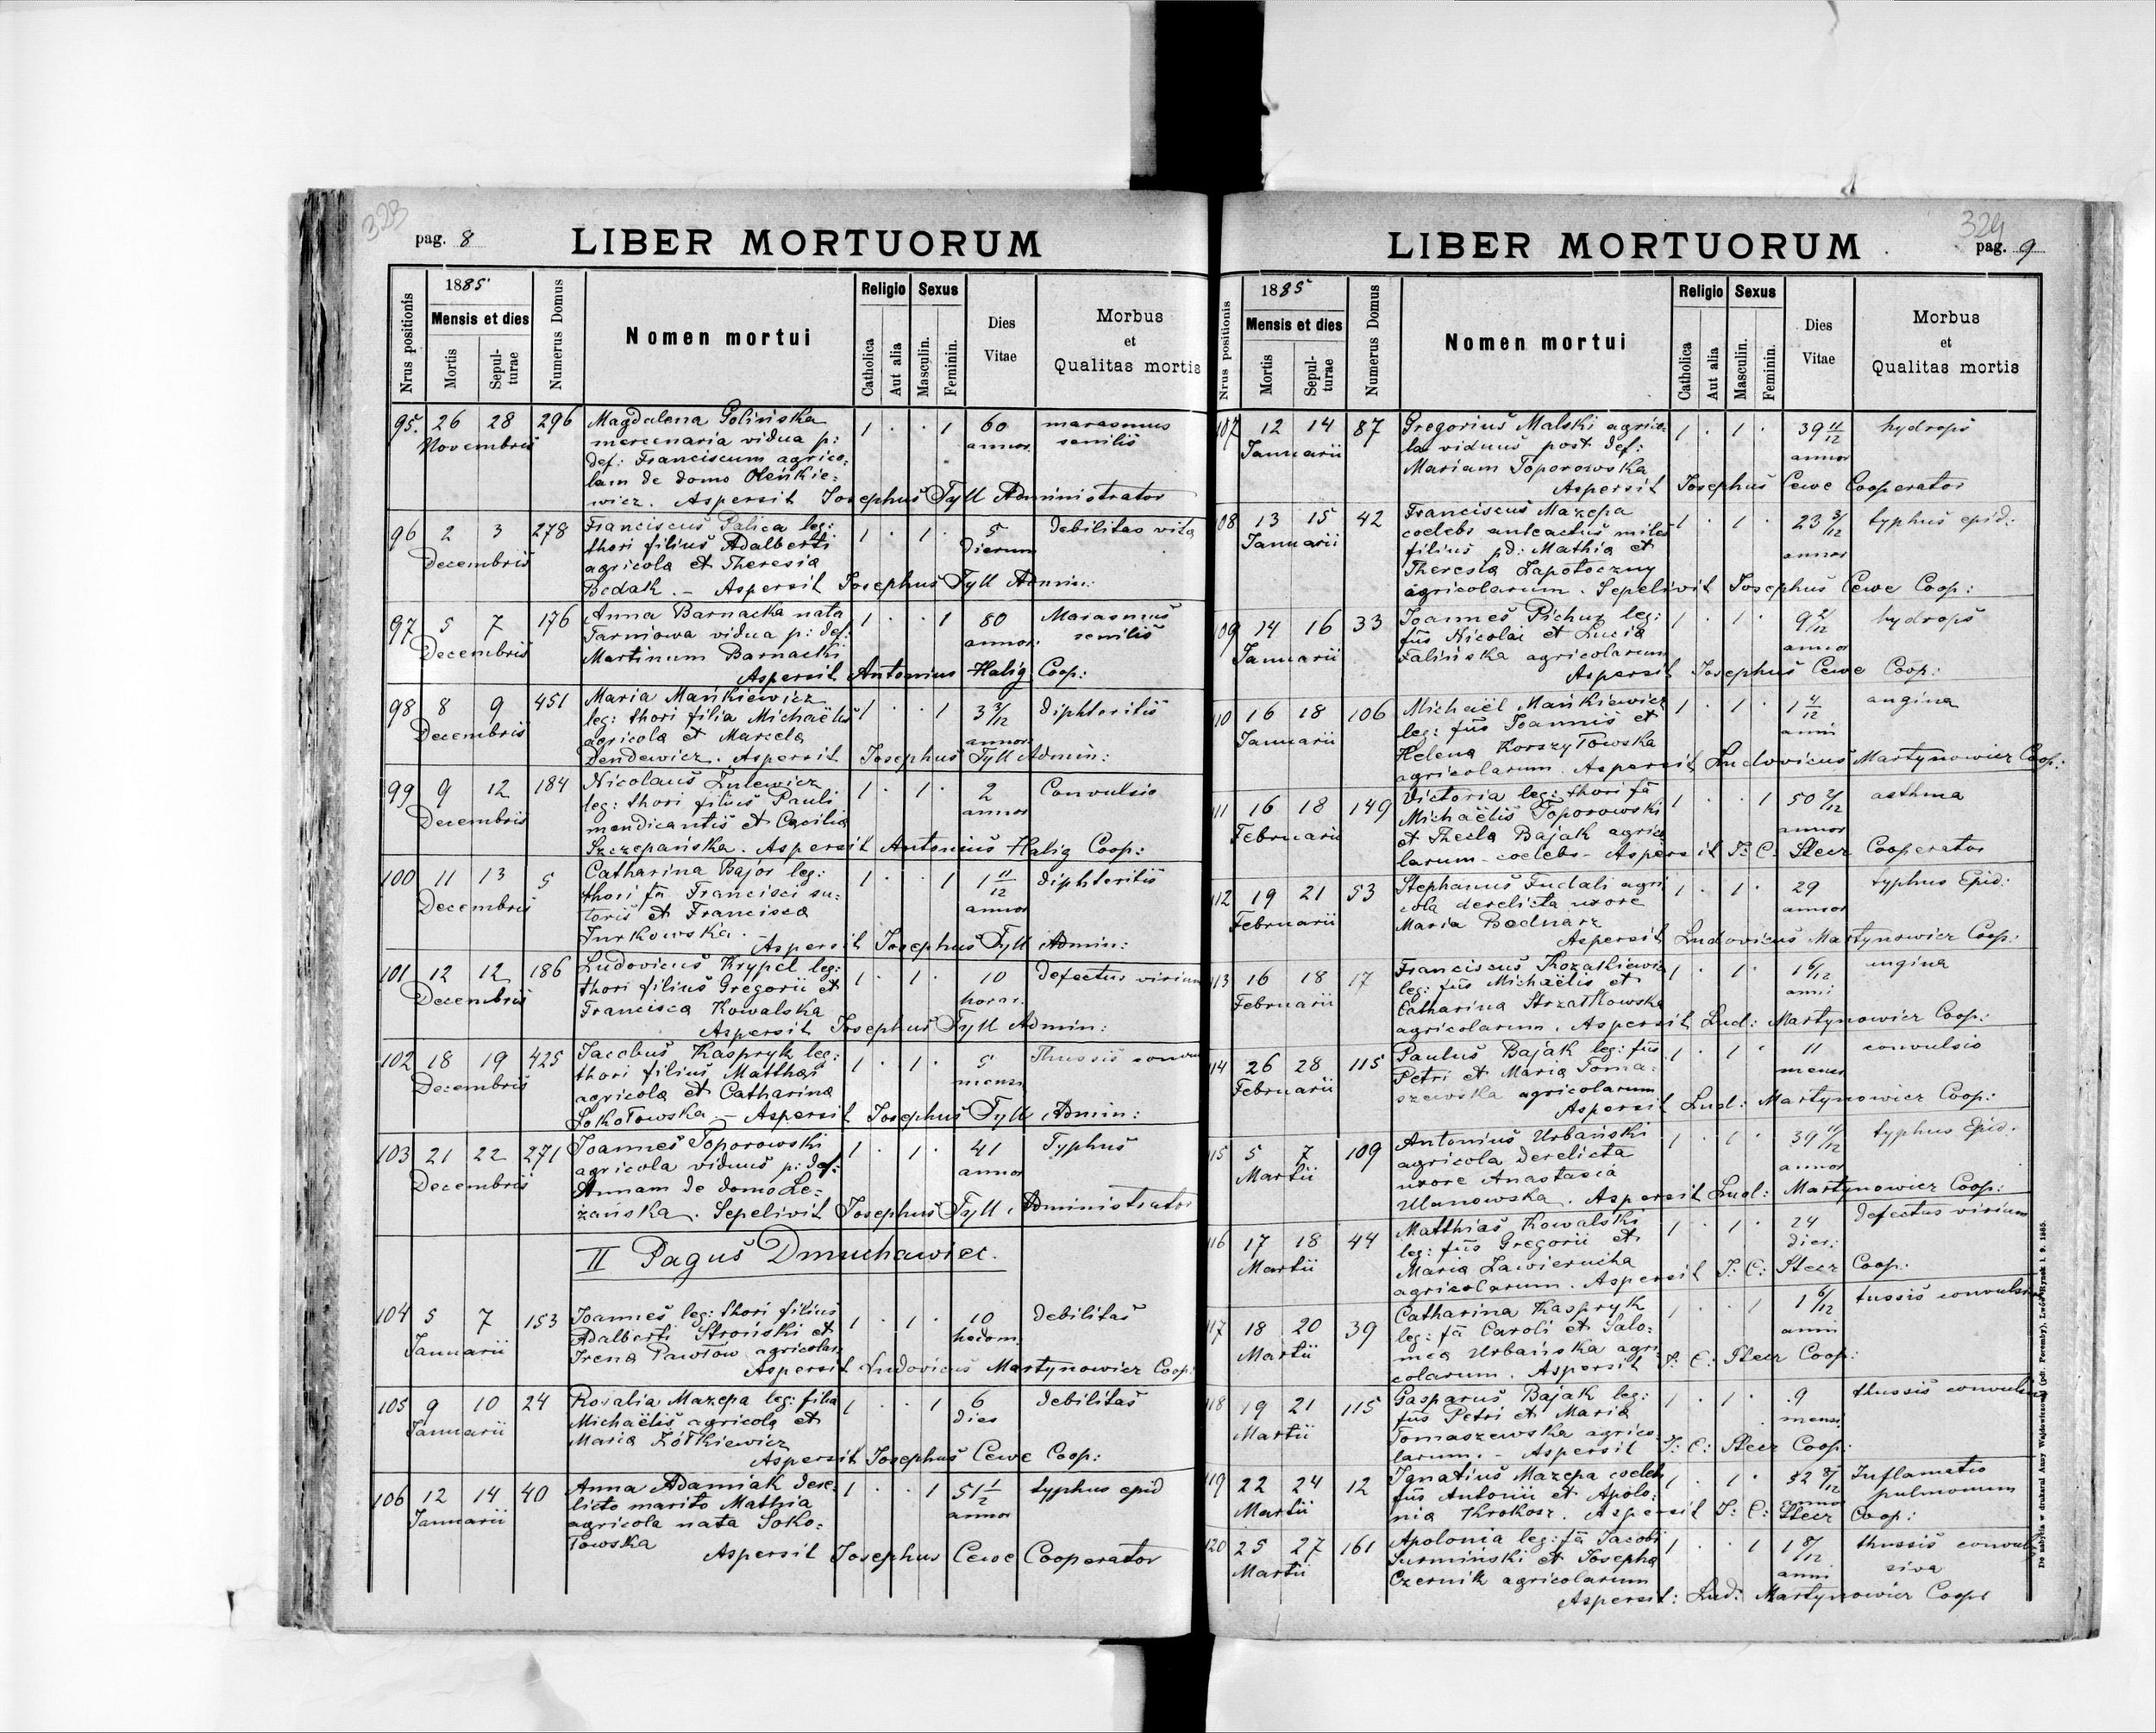 323
pag. 8
LIBER MORTUORUM
Nrus positionis
1885
Mensis et dies
Mortis
Sepulturae
Numerus Domus
Nomen mortui
Religio
Catholica
Aut alia
Sexus
Masculin.
Feminin.
Dies
Vitae
Morbus
et
Qualitas mortis
95. 26 28 296 Magdalena Golińska 1 . . 1 60 marasmus
Novembris mercenaria vidua p: annor. senilis
def: Franciscum agrico:
lam de domo Oleńkie:
wicz. Aspersit Josephus Tyll Administrator
96 2 3 278 Franciscus Palica leg: 1 . 1 . 5 Debilitas vitæ
Decembris thori filius Adalberti dierum
agricolæ et Theresiæ
Bedak. – Aspersit Josephus Tyll Admin:
97 5 7 176 Anna Barnacka nata 1 . . 1 80 Marasmus
Decembris Tarniowa vidua p: def: annor. senilis
Martinum Barnacki
Aspersit Antonius Halig Coop:
98 8 9 451 Maria Mańkiewicz 1 . . 1 3 3/12 diphteritis
Decembris leg: thori filia Michaëlis annor.
agricolæ et Marcelæ
Dendewicz. Aspersit Josephus Tyll Admin:
99 9 12 184 Nicolaus Zulewicz 1 . 1 . 2 Convulsio
Decembris leg: thori filius Pauli annor
mendicantis et Cæciliæ
Szczepańska. Aspersit Antonius Halig Coop:
100 11 13 5 Catharina Bajor leg: 1 . . 1 1 11/12 diphteritis
Decembris thori fa Francisci su: annor
toris et Franciscæ
Jurkowska.
Aspersit Josephus Tyll Admin:
101 12 12 186 Ludovicus Krypel leg: 1 . 1 . 10 defectus virium
Decembris thori filius Gregorii et horar.
Franciscæ Kowalska
Aspersit Josephus Tyll Admin:
102 18 19 425 Jacobus Kaspryk leg: 1 . 1 . 5 Thussis
Decembris thori filius Matthæi mensi
agricolæ et Catharinæ
Sokołowska – Aspersit Josephus Tyll Admin:
103 21 22 271 Joannes Toporowski 1 . 1 . 41 Typhus
Decembris agricola viduus p: def: annor
Annam de domo Le:
żańska. Sepelivit Josephus Tyll, Administrator
II Pagus Dmuchawiec.
104 5 7 153 Joannes leg: thori filius 1 . 1 . 10 debilitas
Januarii Adalberti Stroński et hedom:
Irenæ Pawłow agricolar.
Aspersit Ludovicus Martynowicz Coop:
105 9 10 24 Rosalia Mazepa leg: filia 1 . . 1 6 debilitas
Januarii Michaëlis agricolæ et dies
Mariæ Żółkiewicz
Aspersit Josephus Cewe Coop:
106 12 14 40 Anna Adamiak dere: 1 . . 1 51 1/2 typhus epid
Januarii licto marito Mathia annor
agricola nata Soko:
łowska
Aspersit Josephus Cewe Cooperator
324
LIBER MORTUORUM
pag. 9
Nrus positionis
1885
Mensis et dies
Mortis
Sepulturae
Numerus Domus
Nomen mortui
Religio
Catholica
Aut alia
Sexus
Masculin.
Feminin.
Dies
Vitae
Morbus
et
Qualitas mortis
107 12 14 87 Gregorius Malski agrico: 1 . 1 . 39 11/12 hydrops
Januarii la viduus post def: annor
Mariam Toporowska
Aspersit Josephus Cewe Cooperator
108 13 15 42 Franciscus Mazepa 1 . 1 . 23 3/12 typhus epid:
Januarii coelebs anteactus miles annor
filius pd: Mathiæ et
Theresiæ Łapotoczny
agricolarum. Sepelivit Josephus Cewe Coop:
109 14 16 33 Joannes Pichur leg: 1 . 1 . 9 2/12 hydrops
Januarii fus Nicolai et Luciæ annor
Falińska agricolarum
Aspersit Josephus Cewe Coop:
110 16 18 106 Michaël Mańkiewicz 1 . 1 . 1 4/12 angina
Januarii leg: fus Joannis et anni
Helenæ Korszyłowska
agricolarum. Aspersit Ludovicus Martynowicz Coop:
111 16 18 149 Victoria leg: thori fa 1 . . 1 50 2/12 asthma
Februarii Michaëlis Toporowski annor
et Theclæ Bajak agrico
larum – coelebs – Aspersit J: C: Stecz Cooperator
112 19 21 53 Stephanus Fudali agri 1 . 1 . 29 typhus Epid:
Februarii cola derelicta uxore annor
Maria Bednarz
Aspersit Ludovicus Martynowicz Coop:
113 16 18 17 Franciscus Kozatkiewicz 1 . 1 . 1 6/12 angina
Februarii leg: fus Michaëlis et anni
Catharinæ Strzałkowska
agricolarum. Aspersit Lud: Martynowicz Coop:
114 26 28 115 Paulus Bajak leg: fus 1 . 1 . 11 convulsio
Februarii Petri et Mariæ Toma: mens
szewska agricolarum
Aspersit Lud: Martynowicz Coop:
115 5 7 109 Antonius Urbański 1 . 1 . 39 11/12 typhus Epid.
Martii agricola derelicta annor
uxore Anastasia
Ulanowska. Aspersit Lud: Martynowicz Coop:
116 17 18 44 Matthias Kowalski 1 . 1 . 24 defectus virium
Martii leg: fus Gregorii et dier:
Mariæ Zawierucha
agricolarum. Aspersit J: C: Stecz Coop:
117 18 20 39 Catharina Kaspryk 1 . . 1 1 6/12 tussis convulsiva
Martii leg: fa Caroli et Salo: anni
meæ Urbańska agri:
colarum. Aspersit J: C: Stecz Coop:
118 19 21 115 Gasparus Bajak leg: 1 . 1 . 9 thussis
Martii fus Petri et Mariæ mensi
Tomaszewska agrico
larum. – Aspersit J: C: Stecz Coop:
119 22 24 12 Ignatius Mazepa coeleb 1 . 1 . 52 8/12 Inflamatio
Martii fus Antonii et Apolo: annor pulmonum
nia Krokosz. Aspersit J: C: Stecz Coop:
120 25 27 161 Apolonia leg: fa Jacobi 1 . . 1 1 8/12 thussis convul
Martii Surmiński et Josephæ anni siva
Czernik agricolarum
Aspersit: Lud: Martynowicz Coop:
Do nabycia w drukarni Anny Wajdowiczowej (pdt. Poremby), Lwów Rynek l. 9. 1885.